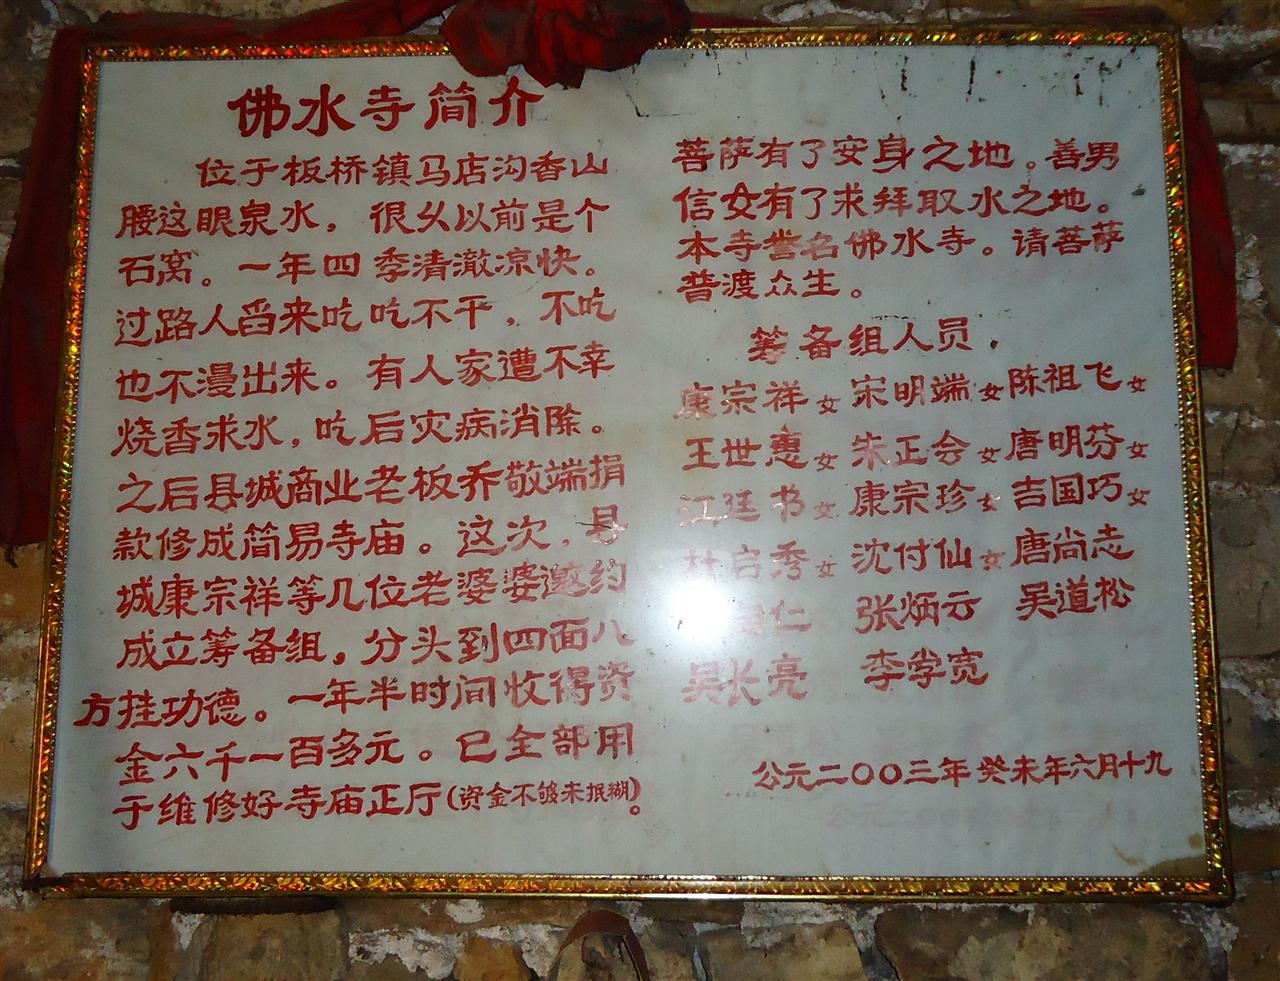 佛水寺简介
位于板桥镇马店沟香山
腰这眼泉水，很久以前是个
石窝。一年四季清澈凉快。
过路人舀来吃吃不干，不吃
也不漫出来。有人家遭不幸
烧香求水，吃后灾病消除。
之后县城商业老板乔敬端捐
款修成简易寺庙。这次，县
城康宗祥等几位老婆婆邀约
成立筹备组，分头到四面八
方挂功德。一年半时间收得资
金六千一百多元。已全部用
于维修好寺庙正厅(资金不够未抿糊)。
菩萨有了安身之地。善男
信女有了求拜取水之地。
本寺誉名佛水寺。请菩萨
普渡众生。
筹备组人员.
康宗祥女 宋明端女 陈祖飞女
王世惠女 朱正会女 唐明芬女
江廷书女 康宗珍女 吉国巧女
秀女 沈付仙女 唐尚志
仁 张炳云 吴道松
吴长亮 李学宽
公元二〇〇三年癸未年六月十九